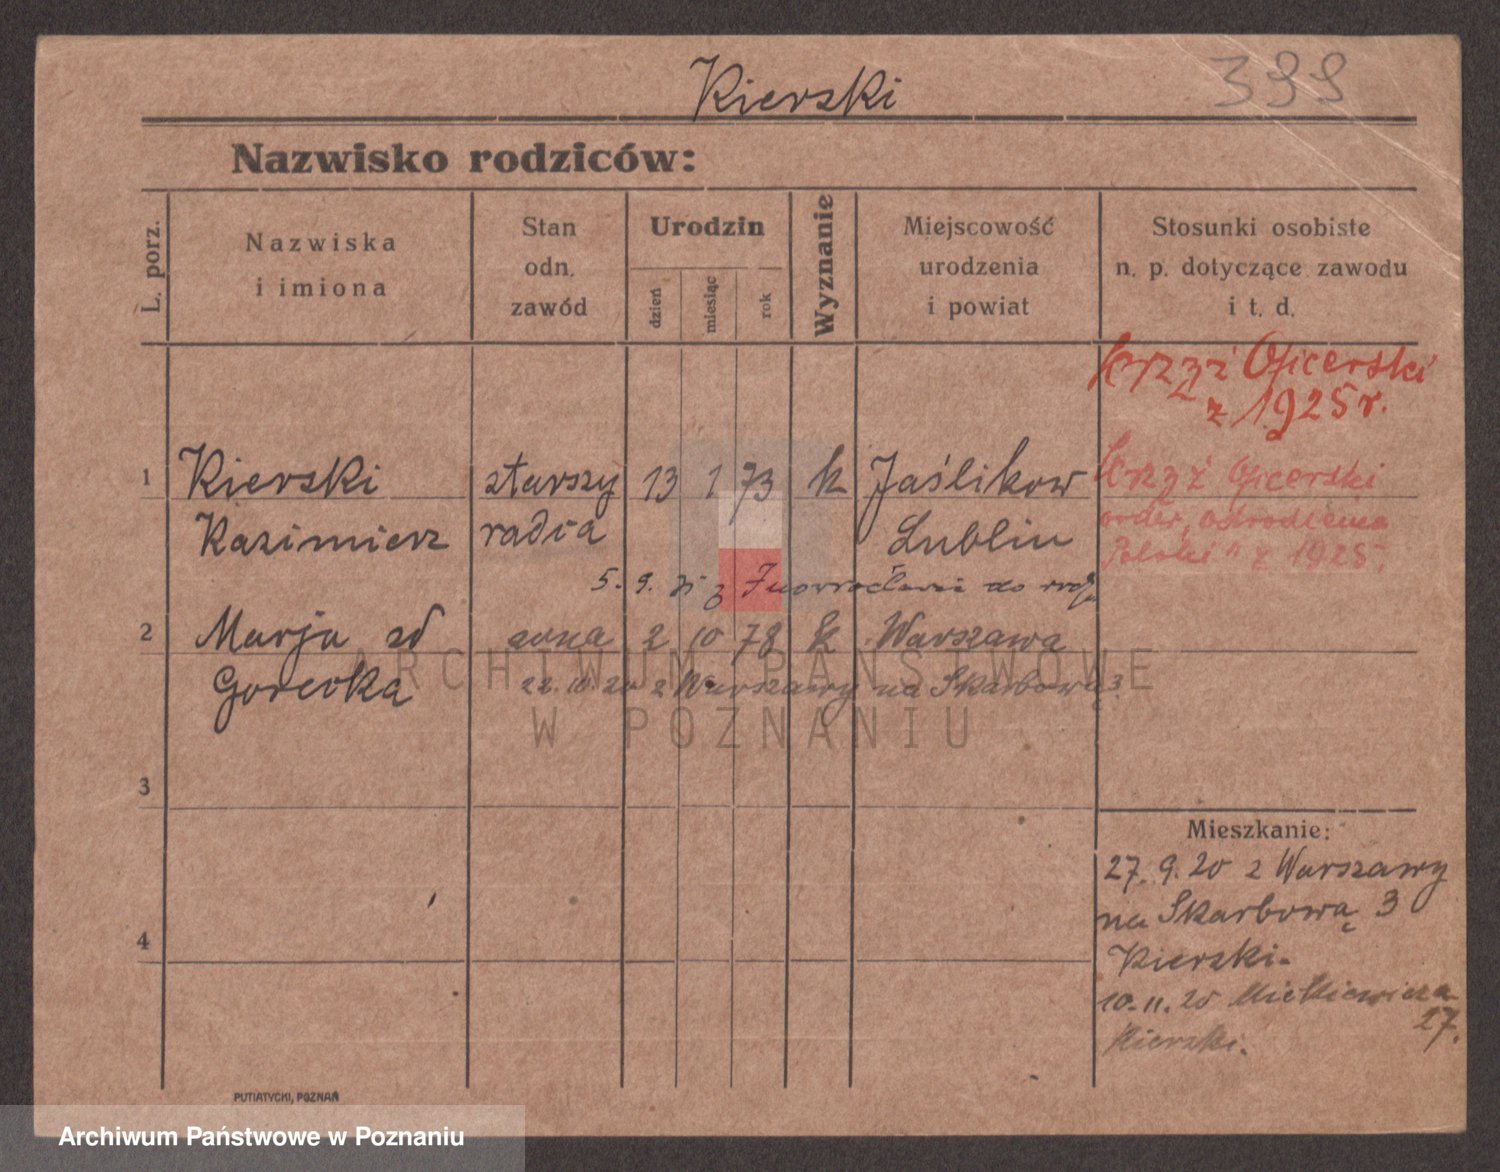 Kierski
399
Nazwisko rodziców:
L. porz.
Nazwiska
i imiona
Stan
odn.
zawód
Urodzin
dzień
miesiąc
rok
Wyznanie
Miejscowość
urodzenia
i powiat
Stosunki osobiste
n. p. dotyczące zawodu
i t. d.
Krzyż Oficerski
z 1925 r.
1 Kierski starszy 13 1 73 k Jaślikow
Kazimierz radca Lublin
Krzyż Oficerski
order „Odrodzenia
Polski" z 1925.
5. 9. z Inowrocławia do
2 Marja zd żona 2 10 78 k Warszawa
Gorecka 22. 10. 20 z Warszawy na Skarbową 3.
3
4
Mieszkanie:
27. 9. 20 z Warszawy
na Skarbową 3
Kierski.
10. 11. 20 Mickiewicza
27.
Kierski.
PUTIATYCKI, POZNAŃ
ARCHIWUM PAŃSTWOWE
W POZNANIU
Archiwum Państwowe w Poznaniu